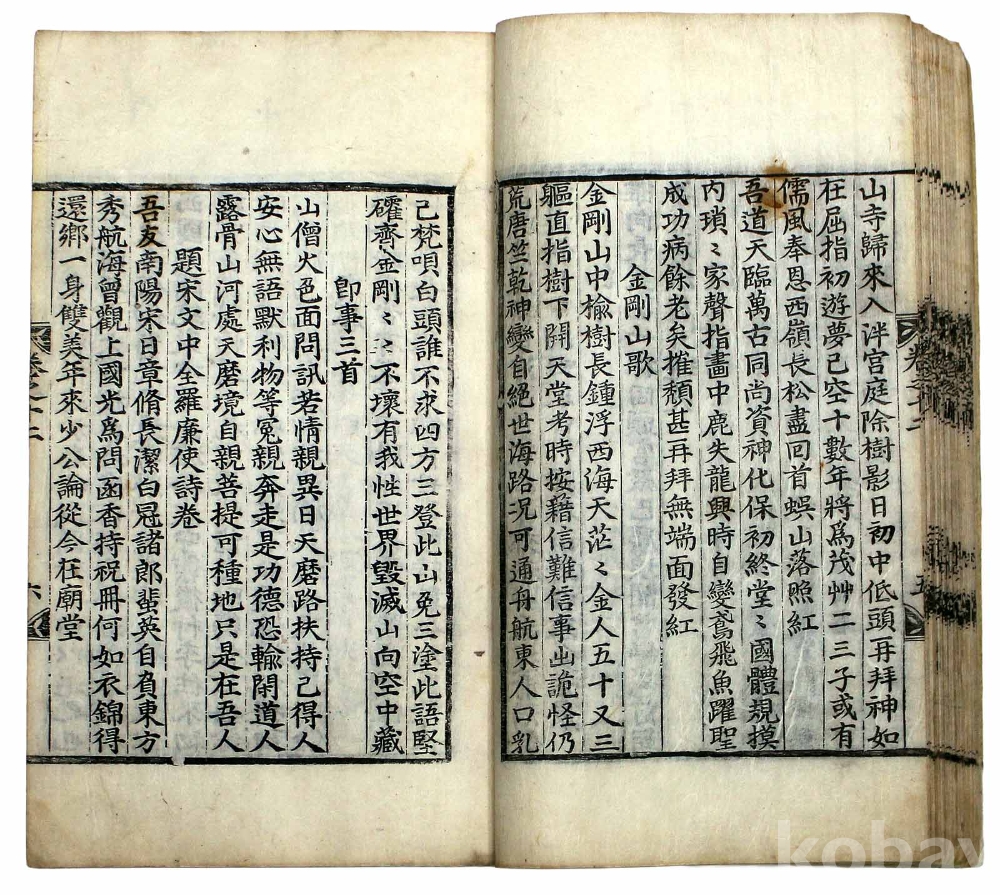 山寺歸來入泮宮庭除樹影日初中低頭再拜神如
在屈指初遊夢已空十數年將爲茂艸二三子或有
儒風奉恩西嶺長松盡回首蜈山落照紅
吾道天臨萬古同尚資神化保初終堂〻國體規摸
內瑣〻家聲指畫中鹿失龍興時自變鳶飛魚躍聖
成功病餘老矣摧頹甚再拜無端面發紅
金剛山歌
金剛山中楡樹長鍾浮西海天茫〻金人五十又三
軀直指樹下開天堂考時按籍信難信事出詭怪仍
荒唐竺乾神變自絕世海路况可通舟航東人口乳
己梵唄白頭誰不求四方三登此山免三塗此語堅
確齊金剛〻〻不壞有我性世界毀滅山向空中藏
卽事三首
山僧火色面問訊若情親異日天磨路扶持己得人
安心無語默利物等冤親奔走是功德恐輸閑道人
露骨山河處天磨境自親菩提可種地只是在吾人
題宋文中全羅廉使詩卷
吾友南陽宋日章脩長潔白冠諸郎蜚英自負東方
秀航海曾觀上國光爲問函香持祝冊何如衣錦得
還鄕一身雙美年來少公論從今在廟堂
卷之十二
五
卷之十二
六
kobay